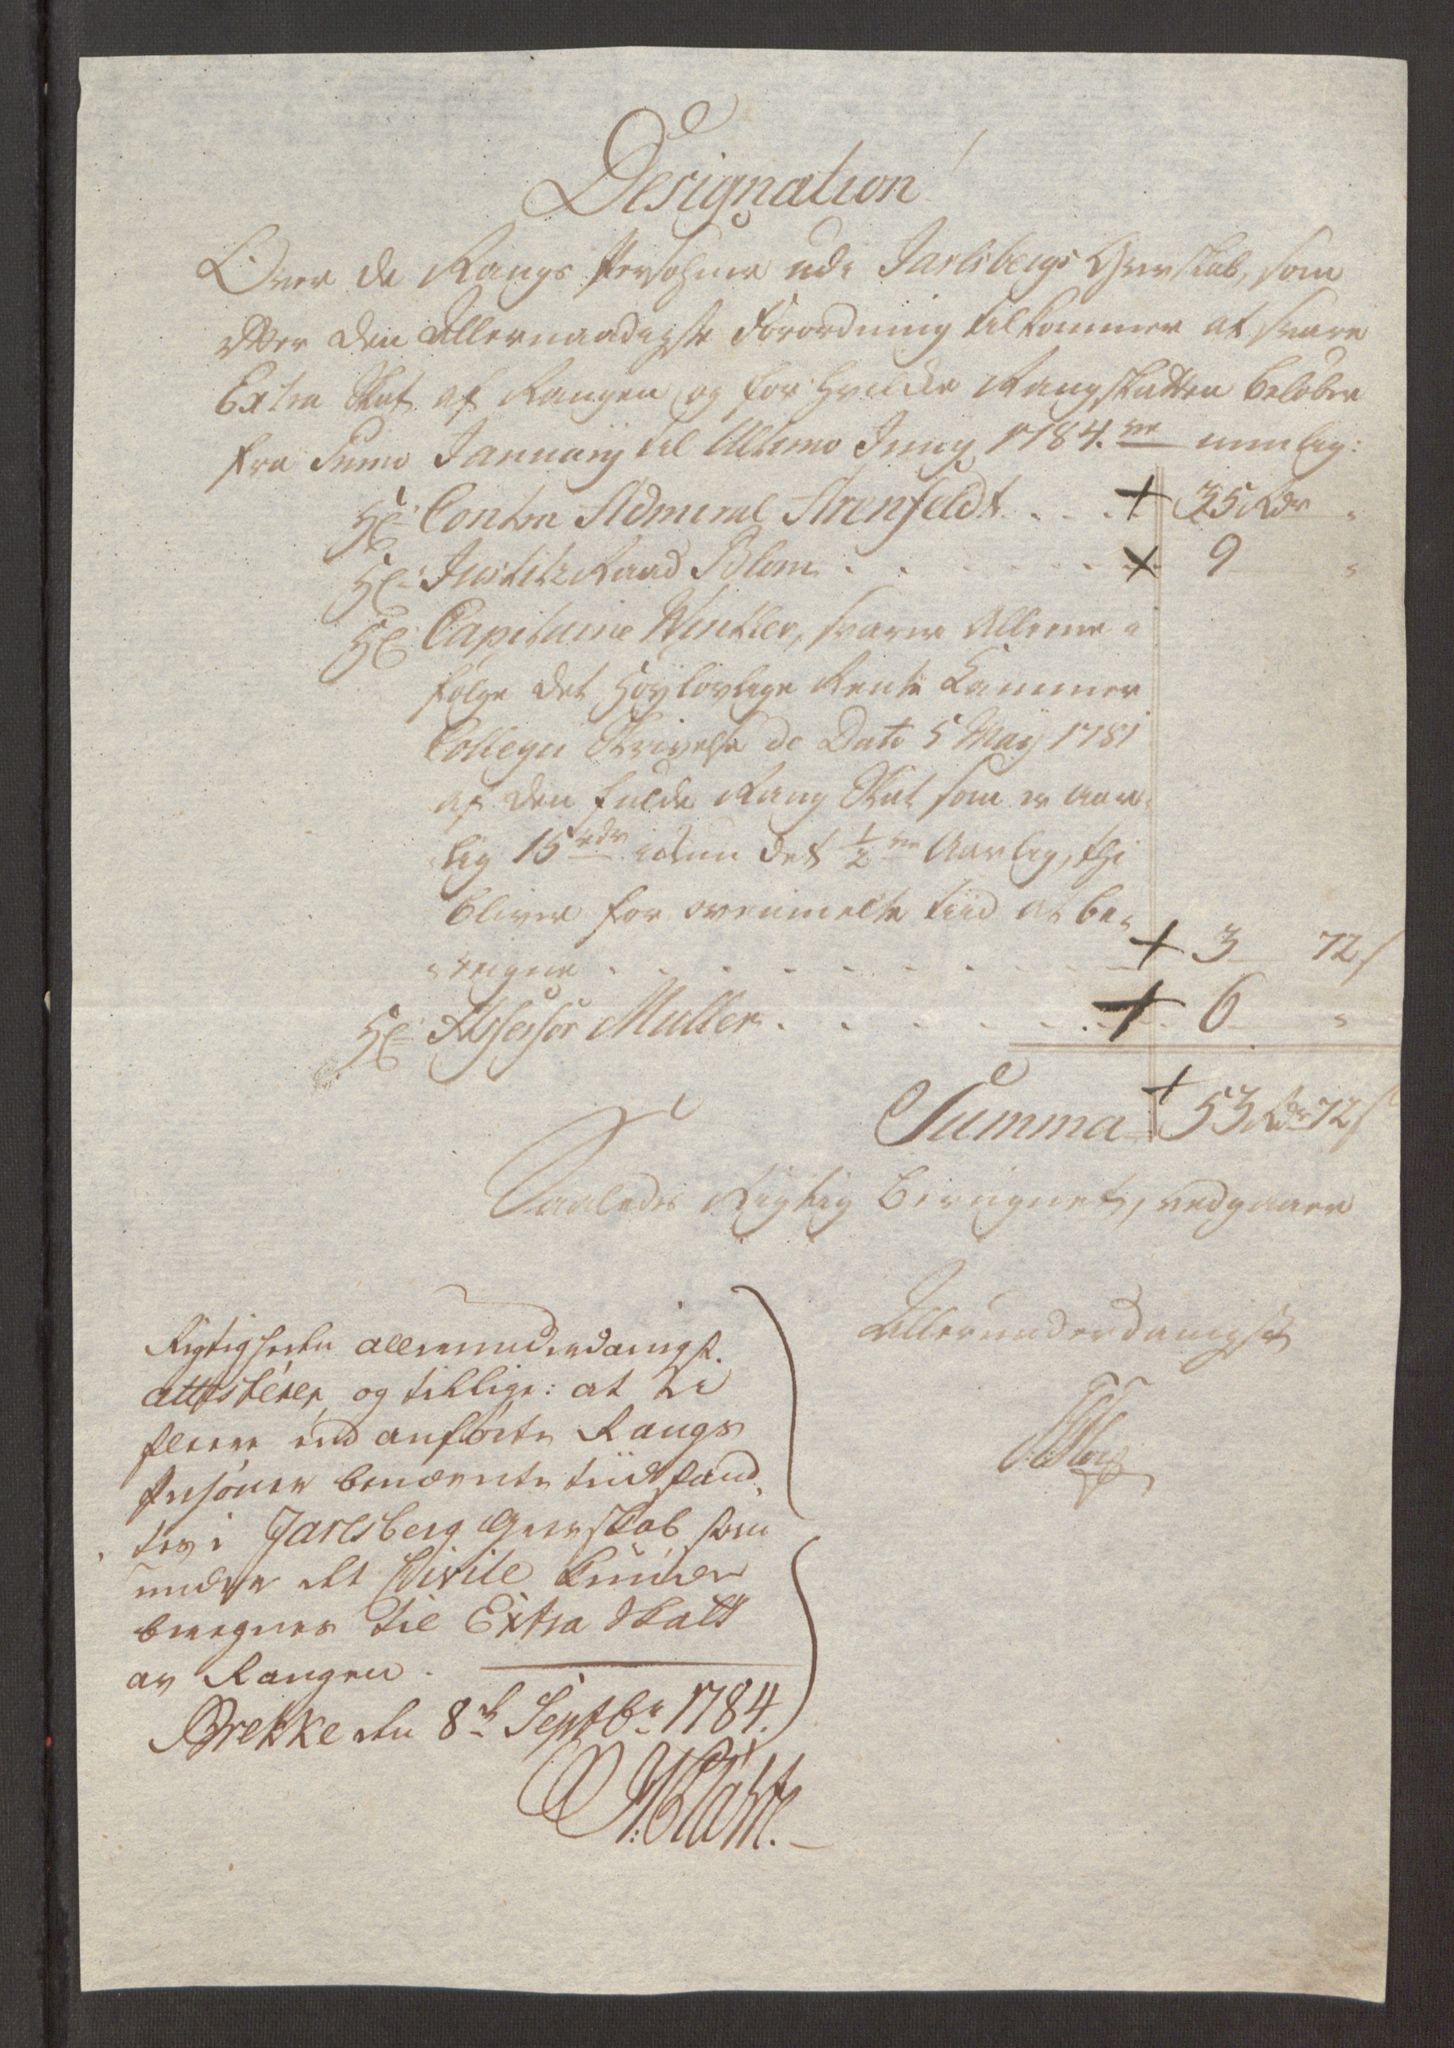 Designation
Over de Rangs Persohner udi Jarlsbergs Grevskab, som
efter den Allernaadigste Forordning tilkommer at svare
Extra Skat af Rangen og for hvilke Rangskatten beløber
fra Primo Januarij til Ultimo Junij 1784. nemlig:
Hr. Contra Admiral Arenfeldt . . . + 35 Rdr "
Hr. Justitz Raad Blom . . . . . . + 9 "
Hr. Capitaine Winkler, svarer Allene i
følge det Høylovlige Rente Kammer
Collegii Skrivelse de Dato 5 Maij 1781
af den fulde Rang Skat som er aar-
lig 15 rdr det 1/2 Aarlig, thi
bliver for ovenmelte tiid at be-
reigne . . . . . . . . . + 3 72 s
Hr. Assessor Muller . . . . . . . + 6 "
Summa + 53 Rdr 72 s
Saaledes Rigtig beregnet, vedgaaer
Allerunderdanigst
Rigtigheden allerunderdanigst.
attesterer, og tillige: at ei
fleere end anførte Rangs
Personer benævnte tiid fand-
tes i Jarlsberg Grevskab som
under det Civile kunde
beregnes til Extra Skatt
av Rangen.
Brekke den 8de Septbr 1784.